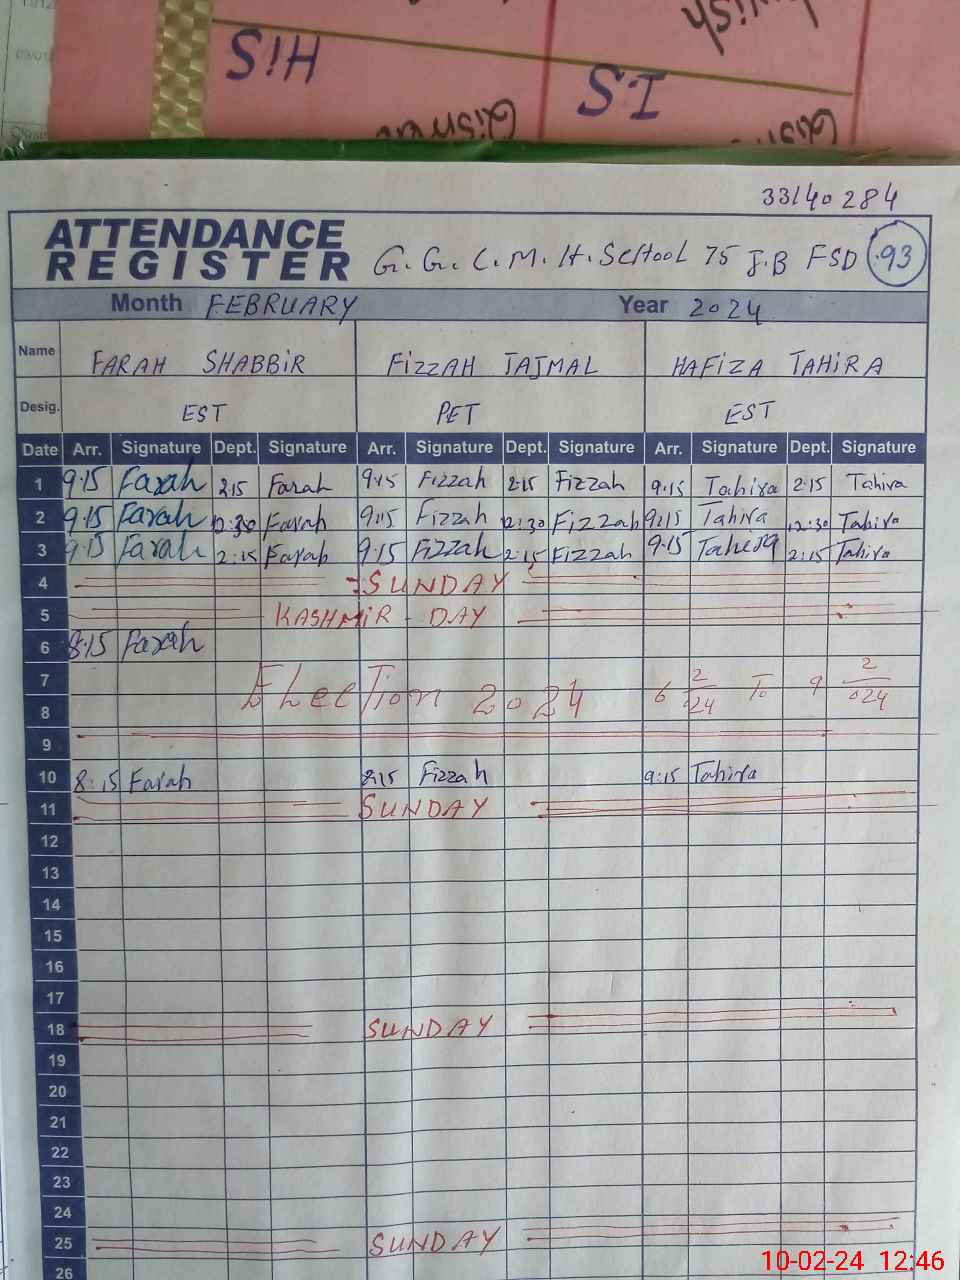 H!S
I.S
33140284
ATTENDANCE
REGISTER G.G.C.M.H.SCHOOL 75 J.B FSD 93
Month FEBRUARY Year 2024
Name FARAH SHABBIR FIZZAH TAJMAL HAFIZA TAHIRA
Desig. EST PET EST
Date Arr. Signature Dept. Signature Arr. Signature Dept. Signature Arr. Signature Dept. Signature
1 9.15 Farah 2.15 Farah 9.15 Fizzah 2.15 Fizzah 9.15 Tahira 2.15 Tahira
2 9.15 Farah 12:30 Farah 9.15 Fizzah 12:30 Fizzah 9.15 Tahira 12:30 Tahira
3 9.15 Farah 2:15 Farah 9.15 Fizzah 2.15 Fizzah 9.15 Tahira 2:15 Tahira
4 SUNDAY
5 KASHMIR - DAY
6 8.15 Farah
7 Election 2024 6 2/24 To 9 2/024
8
9
10 8:15 Farah 8:15 Fizzah 9:15 Tahira
11 SUNDAY
12
13
14
15
16
17
18 SUNDAY
19
20
21
22
23
24
25 SUNDAY
26
10-02-24 12:46